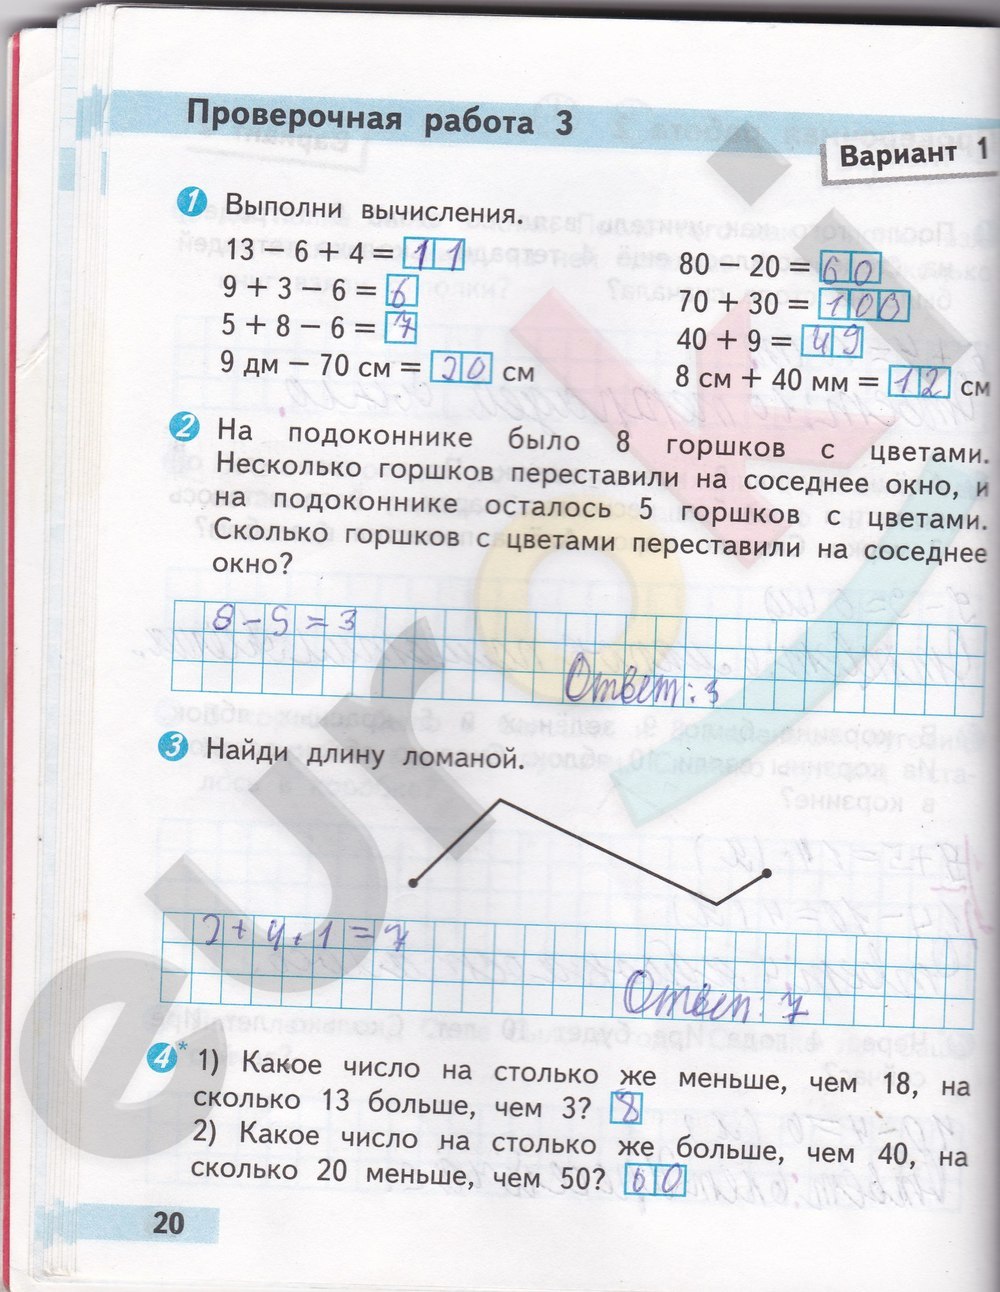 Проверочная работа 3
Вариант 1
1 Выполни вычисления.
13 − 6 + 4 = 11
80 − 20 = 60
9 + 3 − 6 = 6
70 + 30 = 100
5 + 8 − 6 = 7
40 + 9 = 49
9 дм − 70 см = 20 см
8 см + 40 мм = 12 см
2 На подоконнике было 8 горшков с цветами.
Несколько горшков переставили на соседнее окно, и
на подоконнике осталось 5 горшков с цветами.
Сколько горшков с цветами переставили на соседнее
окно?
8 − 5 = 3
Ответ: 3
3 Найди длину ломаной.
2 + 4 + 1 = 7
Ответ: 7
4* 1) Какое число на столько же меньше, чем 18, на
сколько 13 больше, чем 3? 8
2) Какое число на столько же больше, чем 40, на
сколько 20 меньше, чем 50? 60
20